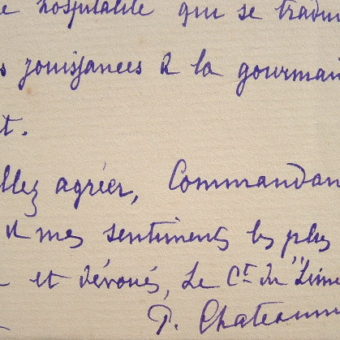 hospitalité qui se tradui
s jouissances à la gourman
t.
llez agréer, Commandan
et mes sentiments les plus
et dévoués, Le Ct du "Lime
P. Chateau